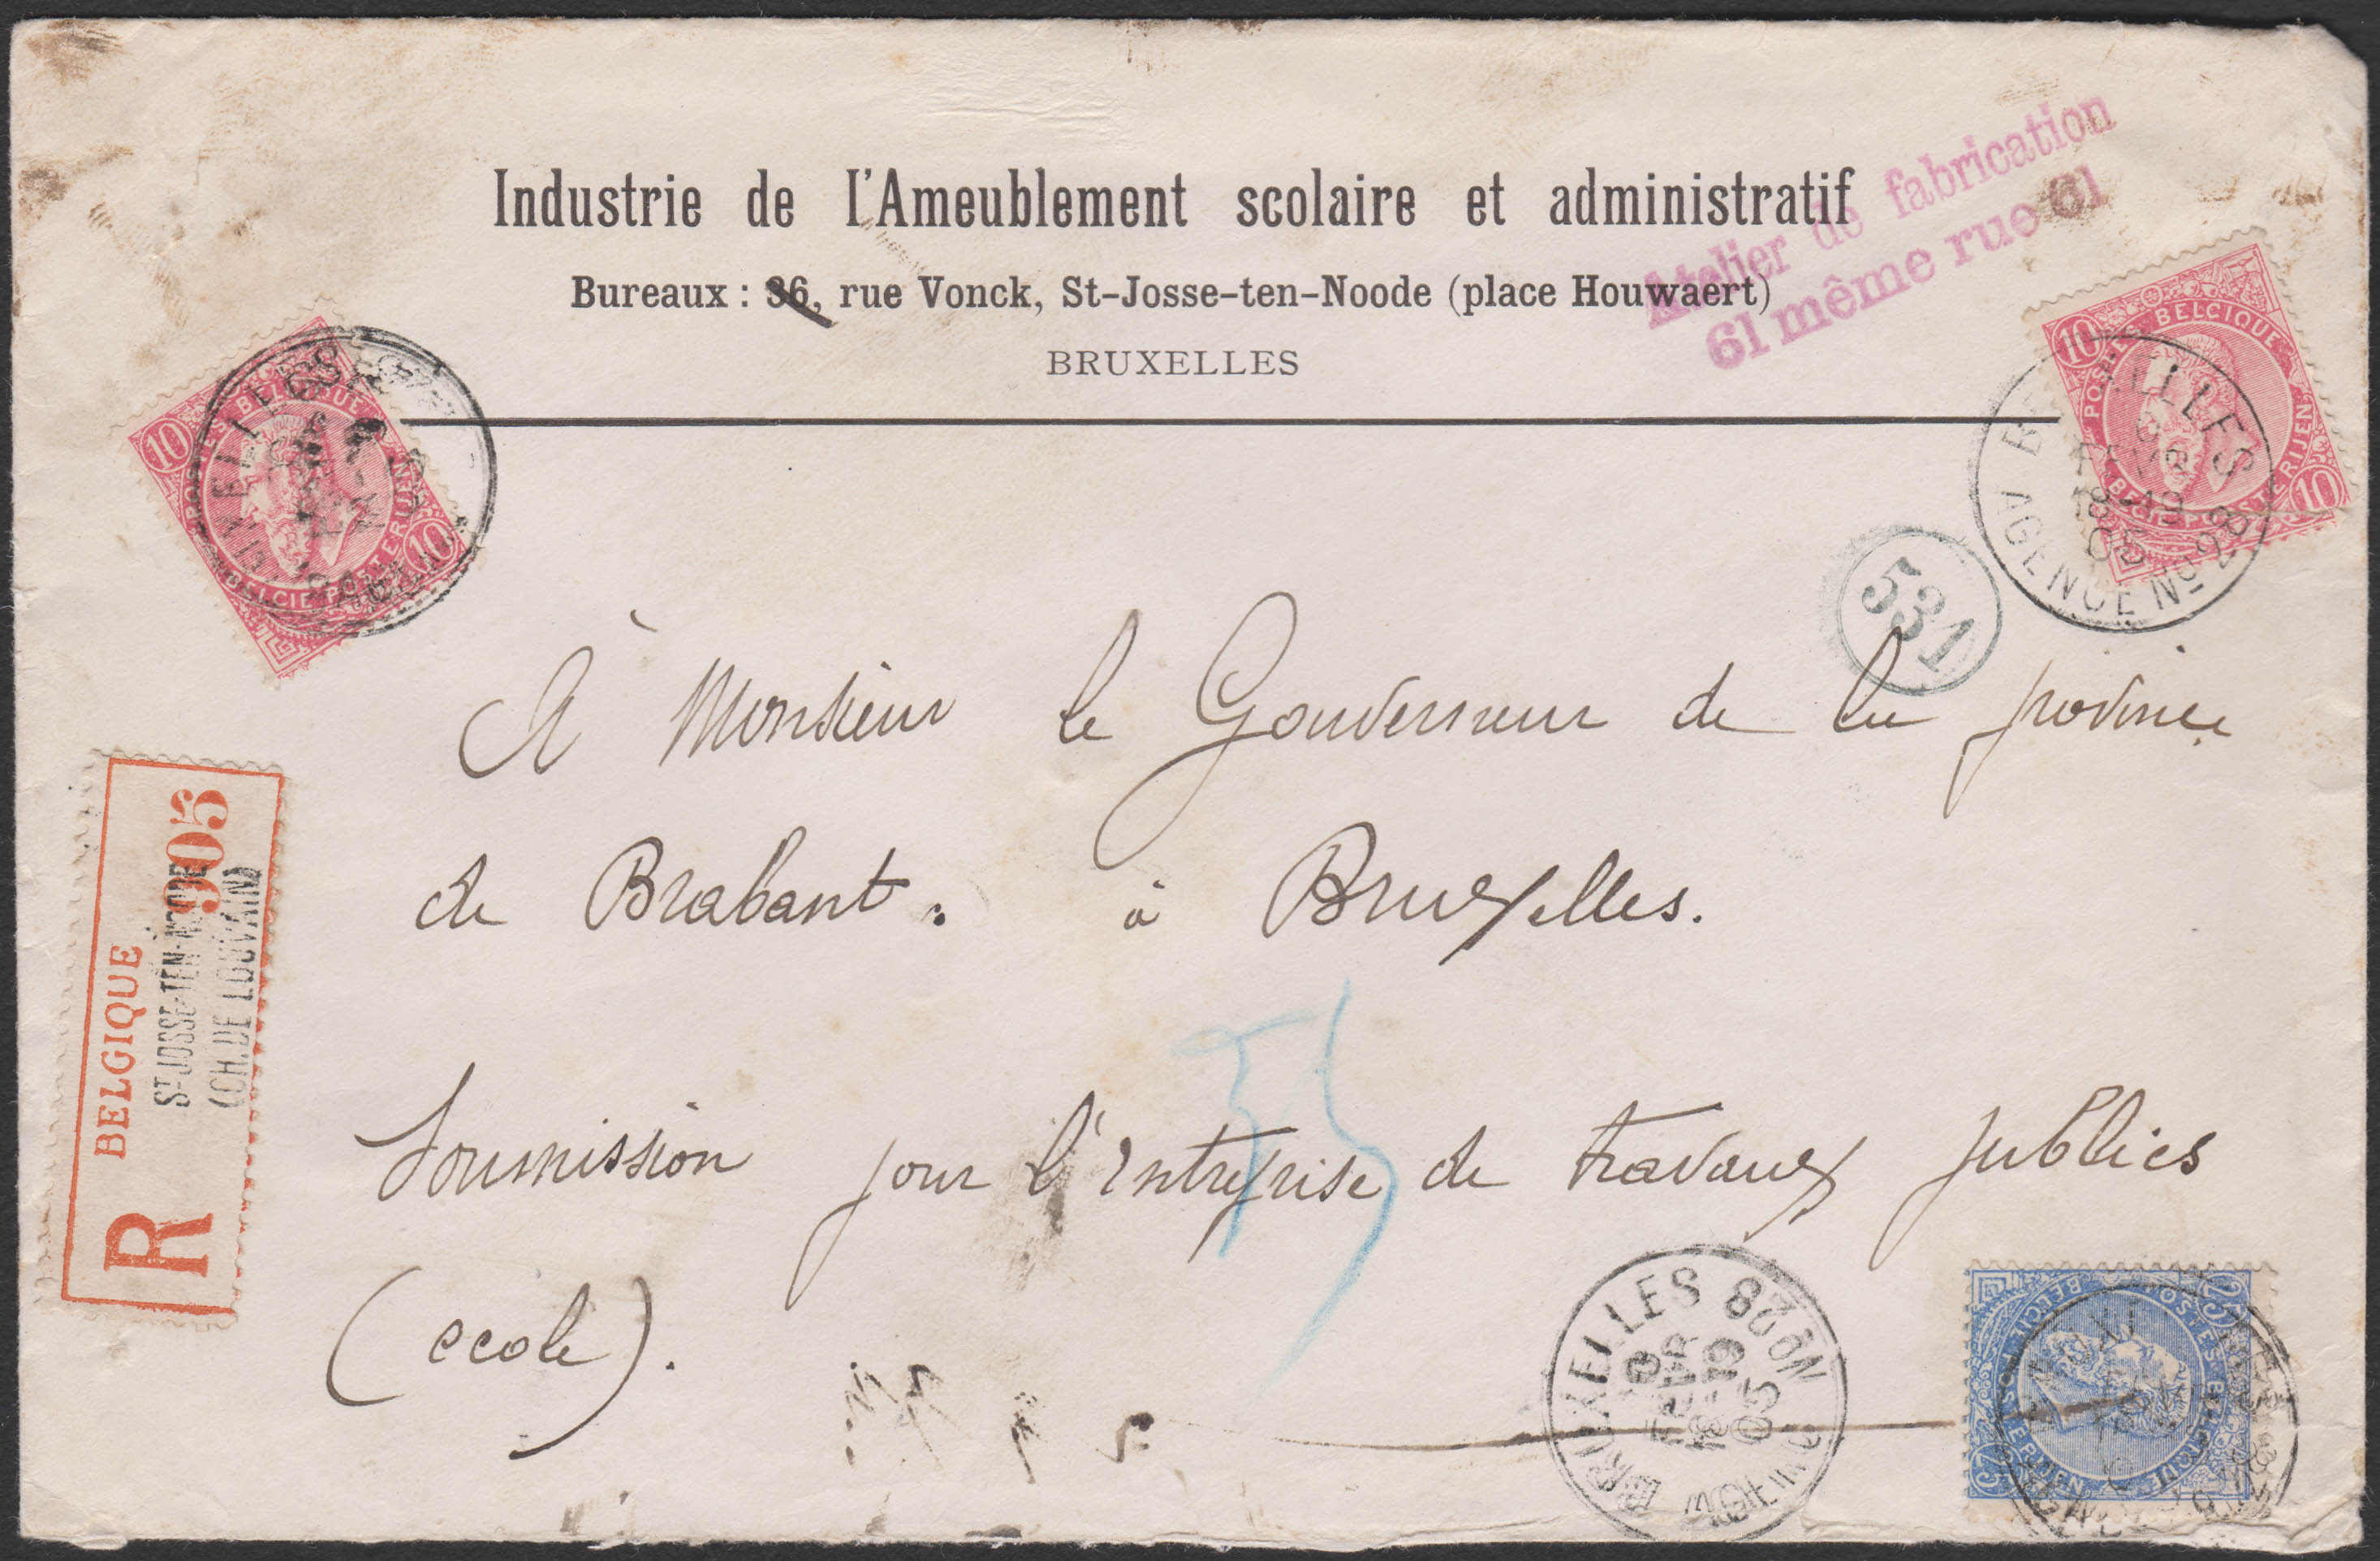 Industrie de l'Ameublement scolaire et administratif
Bureaux : 36, rue Vonck, St-Josse-ten-Noode (place Houwaert)
BRUXELLES
Atelier de fabrication
61 même rue 61
10 POSTES BELGIQUE 10
10 BELGIQUE POSTERIJEN 10
BRUXELLES
8
FEVR
18-19
05
AGENCE Nº 28
531
À Monsieur le Gouverneur de la province
de Brabant. à Bruxelles.
R BELGIQUE 905
ST-JOSSE-TEN-NOODE
(CH. DE LOUVAIN)
Soumission pour l'entreprise de travaux publics
(ecole).
BRUXELLES Nº 28
8
FEVR
18-19
05
AGENCE
25 POSTES BELGIQUE 25